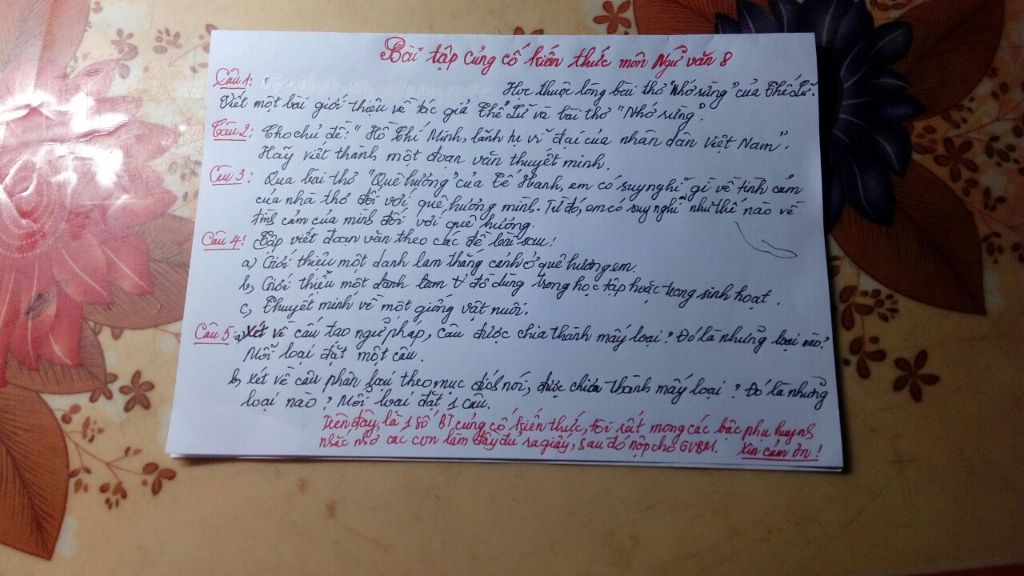 Bài tập củng cố kiến thức môn Ngữ văn 8
Câu 1: Học thuộc lòng bài thơ "Nhớ rừng" của Thế Lữ.
Viết một bài giới thiệu về tác giả Thế Lữ và bài thơ "Nhớ rừng".
Câu 2: Cho chủ đề: "Hồ Chí Minh, lãnh tụ vĩ đại của nhân dân Việt Nam".
Hãy viết thành một đoạn văn thuyết minh.
Câu 3: Qua bài thơ "Quê hương" của Tế Hanh, em có suy nghĩ gì về tình cảm
của nhà thơ đối với quê hương mình. Từ đó, em có suy nghĩ như thế nào về
tình cảm của mình đối với quê hương.
Câu 4: Tập viết đoạn văn theo các đề bài sau:
a) Giới thiệu một danh lam thắng cảnh ở quê hương em.
b) Giới thiệu một đồ dùng trong học tập hoặc trong sinh hoạt.
c) Thuyết minh về một giống vật nuôi.
Câu 5: a) Xét về cấu tạo ngữ pháp, câu được chia thành mấy loại? Đó là những loại nào?
Mỗi loại đặt một câu.
b) Xét về câu phân loại theo mục đích nói, được chia thành mấy loại? Đó là những
loại nào? Mỗi loại đặt 1 câu.
Trên đây, là 1 số BT củng cố kiến thức, tôi rất mong các bậc phụ huynh
nhắc nhở các con làm đầy đủ ra giấy, sau đó nộp cho GVBM. Xin cảm ơn!